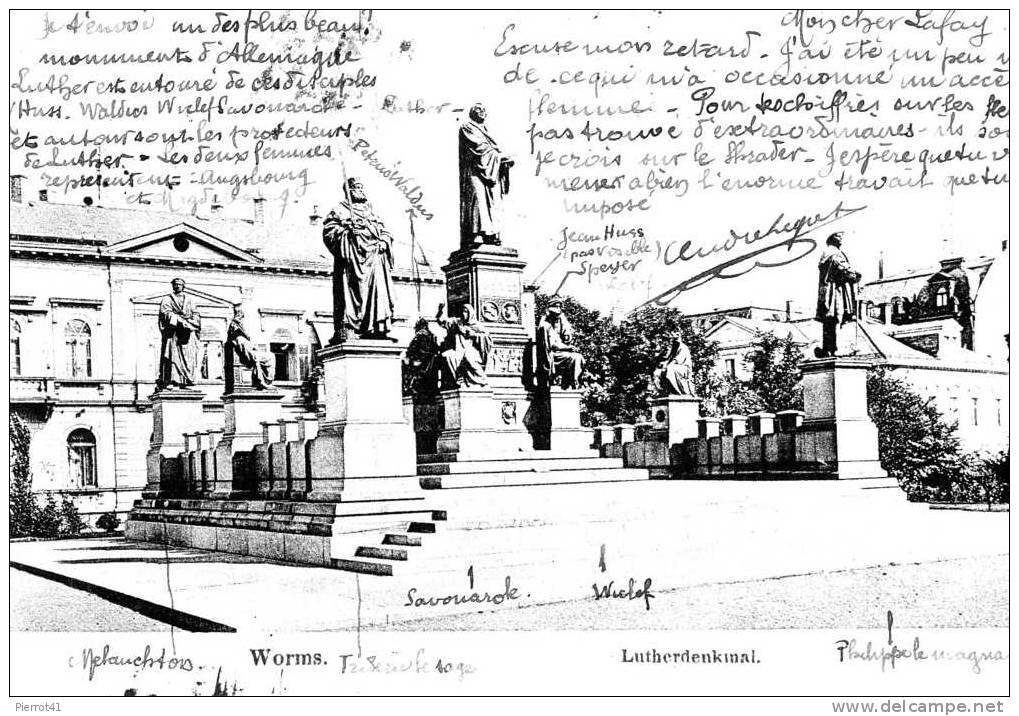 Je t'envoi un des plus beau!
monuments d'Allemagne
Luther est entouré de ces disciples
(Huss. Waldus Wiclef Savonarole - Luther -
et autour sont les protecteurs
de Luther - Les deux femmes
représentent - Augsbourg
et Magdebourg
Mon cher Lafay
Excuse mon retard - J'ai été un peu
de ce qui m'a occasionné un accè
flemme - Pour sur les
pas trouvé d'extraordinaires - ils
je crois sur le - J'espère que tu
mener à bien l'énorme travail que tu
impose
Petrus Waldus
Jean Huss
(pas visible)
Speyer
Savonarok.
Wiclef
Melanchton.
Worms.
le sage
Lutherdenkmal.
Philippe le magna
Pierrot41
www.delcampe.net